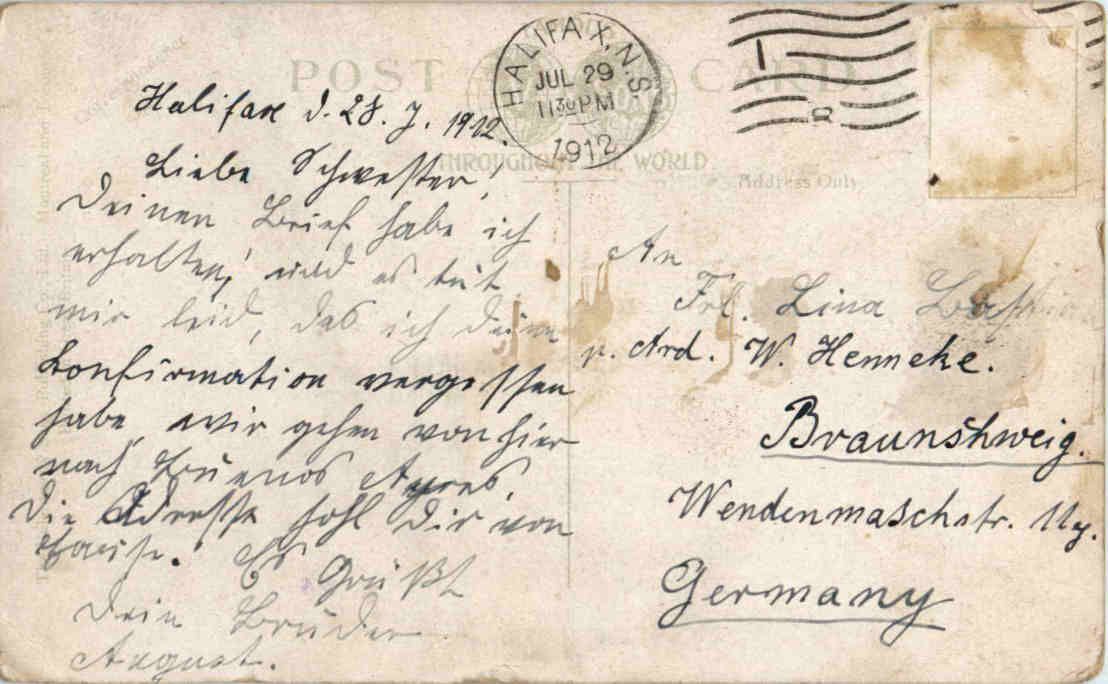 POST CARD
HALIFAX, N.S.
JUL 29
11 30 PM
1912
THROUGHOUT THE WORLD
Address Only
Halifax d. 28. 7. 1912.
Liebe Schwester,
Deinen Brief habe ich
erhalten, und es tut
mir leid, das ich deine
Konfirmation vergessen
habe, wir gehen von hier
nach Buenos Ayres,
die Adresse hohl Dir von
Hause. Es Grüßt
Dein Bruder
August.
An
Frl. Lina
p. Ard. W. Henneke.
Braunshweig.
Wendenmaschstr.
Germany